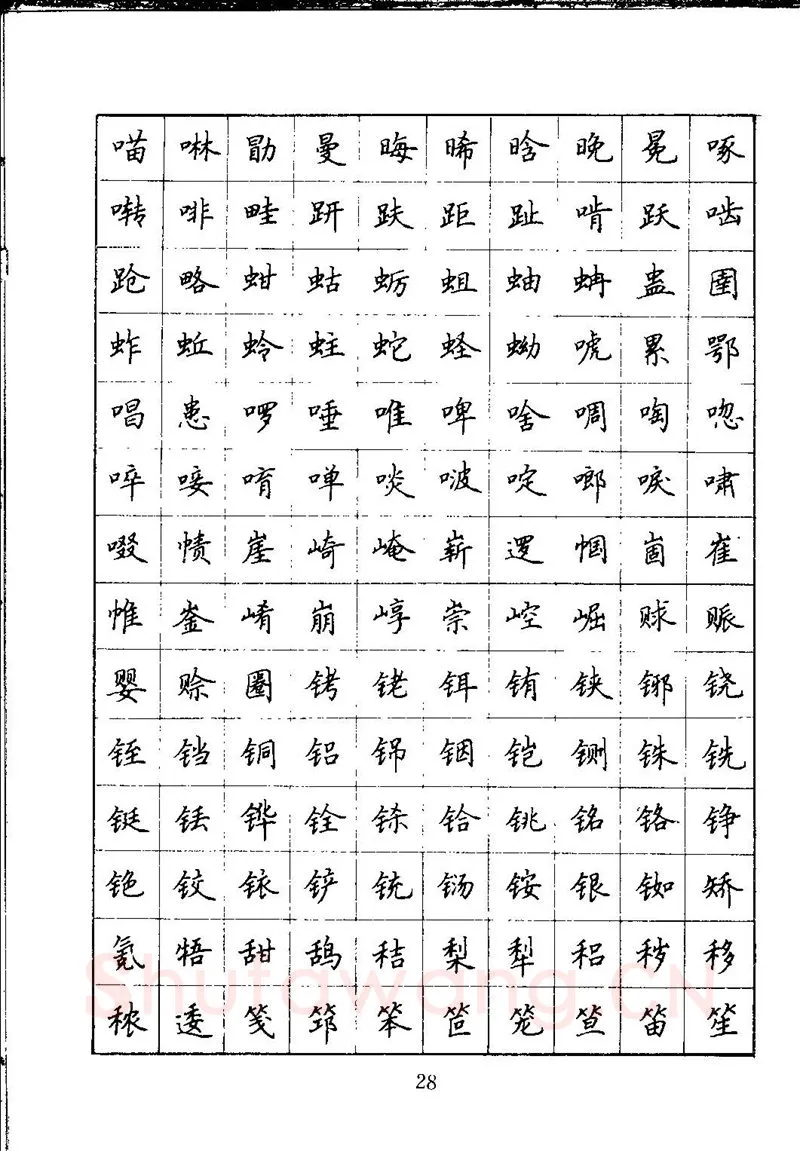 喵 啉 勖 曼 晦 晞 晗 晚 冕 啄
啭 啡 畦 趼 趺 距 趾 啃 跃 啮
跄 略 蚶 蛄 蛎 蛆 蚰 蚺 蛊 圉
蚱 蚯 蛉 蛀 蛇 蛏 蚴 唬 累 鄂
唱 患 啰 唾 唯 啤 啥 啁 啕 唿
啐 唼 唷 啴 啖 啵 啶 啷 唳 啸
啜 帻 崖 崎 崦 崭 逻 帼 崮 崔
帷 崟 崤 崩 崞 崇 崆 崛 赇 赈
婴 赊 圈 铐 铑 铒 铕 铗 铘 铙
铚 铛 铜 铝 铞 铟 铠 铡 铢 铣
铤 铥 铧 铨 铩 铪 铫 铭 铬 铮
铯 铰 铱 铲 铳 铴 铵 银 铷 矫
氪 牾 甜 鸹 秸 梨 犁 稆 秽 移
秾 逶 笺 筇 笨 笸 笼 笪 笛 笙
Shufawang.CN
28